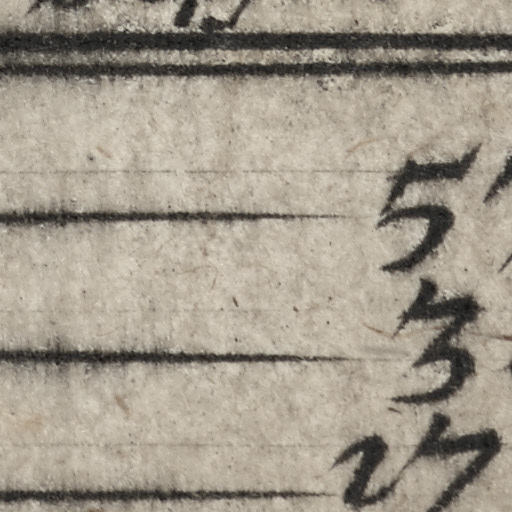 5
3
27